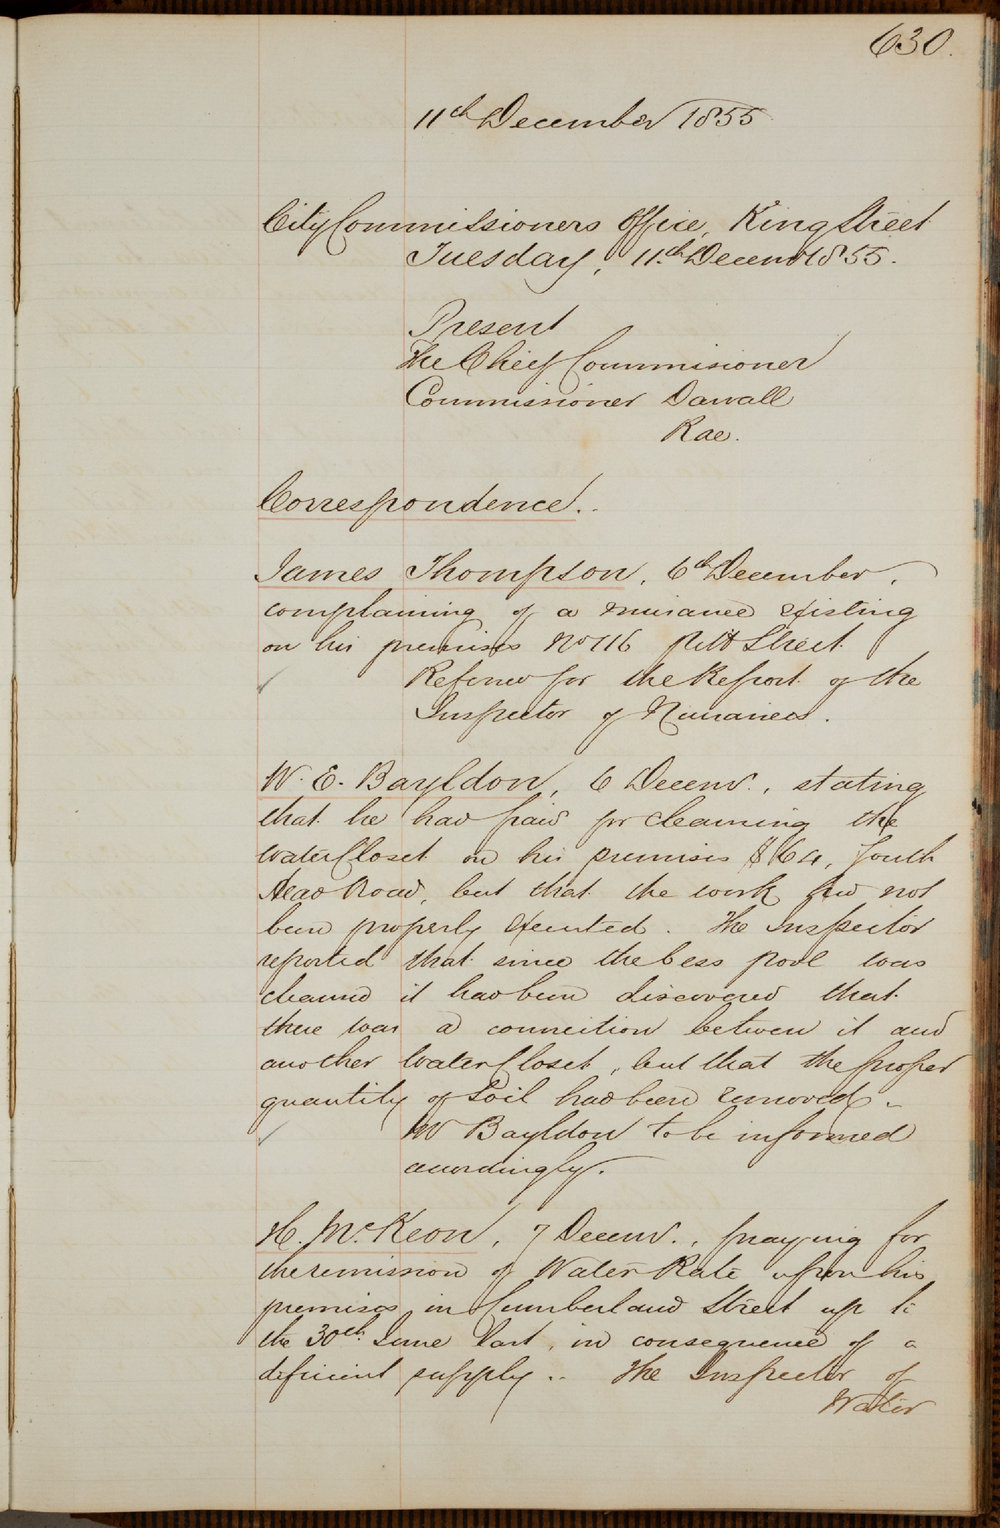 630.
11th December 1855
City Commissioners Office, King Street
Tuesday, 11th Decemr 1855.
Present
The Chief Commissioner
Commissioner Darvall
Rae.
Correspondence.
James Thompson, 6th December,
complaining of a nuisance existing
on his premises No 716 Pitt Street
Referred for the Report of the
Inspector of Nuisances.
W. E. Bayldon, 6 Decemr., stating
that he had paid for cleaning the
Water Closet on his premises 164, South
Head Road, but that the work had not
been properly executed. The Inspector
reported that since the Cess pool was
cleaned it had been discovered that
there was a connection between it and
another Water Closet, but that the proper
quantity of Soil had been removed.
Mr Bayldon to be informed
accordingly.
H. McKeon, 7 Decemr., praying for
the remission of Water Rate upon his
premises in Cumberland Street up to
the 30th June last, in consequence of a
deficient supply. The Inspector of
Water